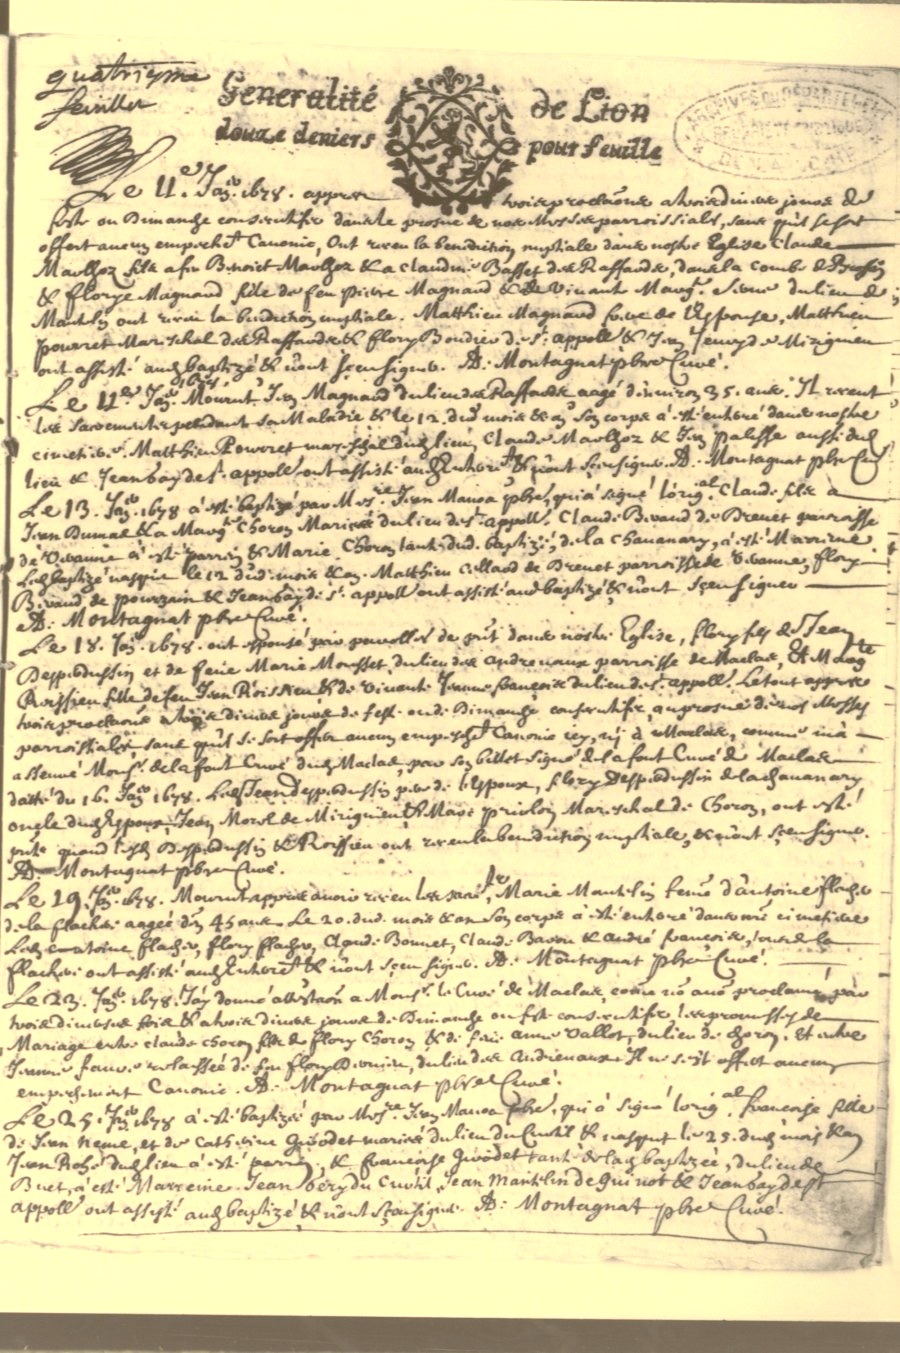 quatriesme
feuillet
Generalité de Lion
douze deniers pour feuille
ARCHIVES DU DEPARTEMENT
Le 11e Janv 1678. apres trois proclaõns a trois divers jours de
feste ou Dimanche consecutifs dans le prosne de nos Messes parroissiales, sans qu'il se soit
offert aucun empeschemt Canonic, Ont receu la benediction nuptiale dans nostre Eglise Claude
fils a feu Benoict & a Claudine Basset des Raffards, dans la combe de
& Florye Magnand fille de feu Pierre Magnand & de vivant du lieu de
Mantelin ont receu la benediction nuptiale. Matthieu Magnand de l'Espouse, Matthieu
Pourret Mareschal des Raffards & flory Boudier de St. appoll & Jean
ont assisté & n'ont sceu signe. A: Montagnat pbre Curé.
Le 11e Janv 1678. Mourut Jean Magnand du lieu des Raffards aagé d'environ 35. ans. Il receut
les Sacements pendant sa Maladie & le 12. dud mois & an son corps a esté enterré dans nostre
cimetiere. Matthieu Pourret mareschal dud lieu, Claude & Jean palisse aussi dud
lieu & Jean bayde St. appoll ont assisté aud Enterremt & n'ont sceu signe. A: Montagnat pbre Curé
Le 13. Janv 1678 a esté baptizé par Messre Jean Manoa pbre, qui a signé l'origal Claude fils a
Jean Dumas & a Margte Choron Mariés du lieu de St. appoll. Claude Bivaud de Brenet parroisse
de Vivanne a esté parrin & Marie Choron tante dud. baptizé, de la Chavanary, a esté Marrine.
Led baptizé nasquit le 12 dud. mois & an. Matthieu de Brenet parroisse de Vivanne, flory
Bivaud de pourzain & Jean bayde St. appoll ont assisté aud baptizé & n'ont sceu signer
A: Montagnat pbre Curé.
Le 18. Janv 1678. ont espousé par parolles de pnt dans nostre Eglise, flory fils de Jean
Despedussin et de feue Marie Mousset, du lieu des andrenaux parroisse de Maclas, & Margte
Roissieu fille de feu Jean Roissieu & de vivante Jeanne françois du lieu de St. appoll. Le tout apres
trois proclaõns a trois divers jours de feste ou de Dimanche consecutifs, au prosne de nos Messes
parroissiales sans qu'il se soit offert aucun empeschet Canonic icy, ny a Maclas, comme m'a
asseuré Monsr. de la font Curé dud Maclas, par son billet signé de la font Curé de Maclas
datté du 16. Janv 1678. Led Jean Despedussin pere de l'espoux, flory Despedussin de la chavanary
oncle dud Espoux, Jean Morel de & Marc priolon Mareschal de Choron, ont esté
pnts quand lesd Despedussin & Roissieu ont receu la benediction nuptiale, & n'ont sceu signe.
A: Montagnat pbre Curé.
Le 19. Janv 1678. Mourut apres avoir receu les sacts, Marie Mantelin feme d'antoine flacher
de la flachere aagée d'en 45 ans. Le 20. dud. mois & an son corps a esté enterré dans nre cimetiere
Led. antoine flacher, flory flacher, Claude Bonnet, Claude Baron & andré françois, tous de la
flachere ont assisté aud Enterret & n'ont sceu signe. A: Montagnat pbre Curé.
Le 23. Janv 1678. J'ay donné attestaõn a Monsr. le Curé de Maclas, come no avos proclamé par
trois diverses fois & a trois divers jours de Dimanche ou feste consecutifs les promesses de
Mariage entre claude choron fils de flory Choron & de feue anne vallot, du lieu de choron. Et entre
Jeanne faure relaissée de feu flory Dervieu, du lieu des andrienaux. Il ne s'est offert aucun
empeschement Canonic. A: Montagnat pbre Curé.
Le 25. Janv 1678 a esté baptizée par Messre. Jean Manoa pbre, qui a signé l'origal. françoise fille
de Jean Neme, et de Catherine Givodet mariés du lieu du Curtil & nasquit le 23. dud mois & an
Jean Roche dud lieu a esté parrin, & françoise Givodet tante de lad baptizée, du lieu de
Buet, a esté Marreine. Jean bery du Curtil, Jean Mantelin de Guinot & Jean bay de St
appoll ont assisté aud baptizé & n'ont sceu signe. A: Montagnat pbre Curé.